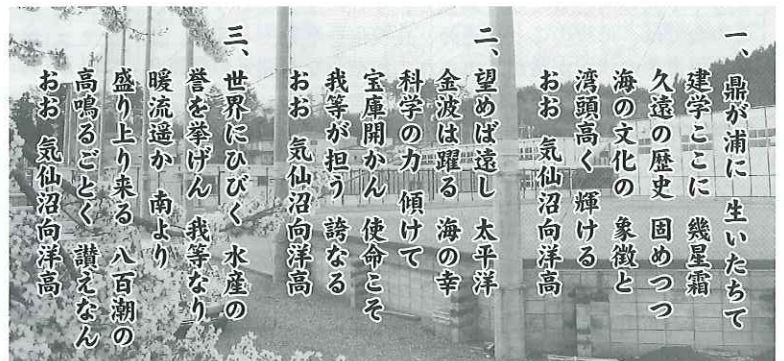 一、鼎が浦に 生いたちて
建学ここに 幾星霜
久遠の歴史 固めつつ
海の文化の 象徴と
湾頭高く 輝ける
おお 気仙沼向洋高
二、望めば遠し 太平洋
金波は躍る 海の幸
科学の力 傾けて
宝庫開かん 使命こそ
我等が担う 誇なる
おお 気仙沼向洋高
三、世界にひびく 水産の
誉を挙げん 我等なり
暖流遥か 南より
盛り上り来る 八百潮の
高鳴るごとく 讃えなん
おお 気仙沼向洋高